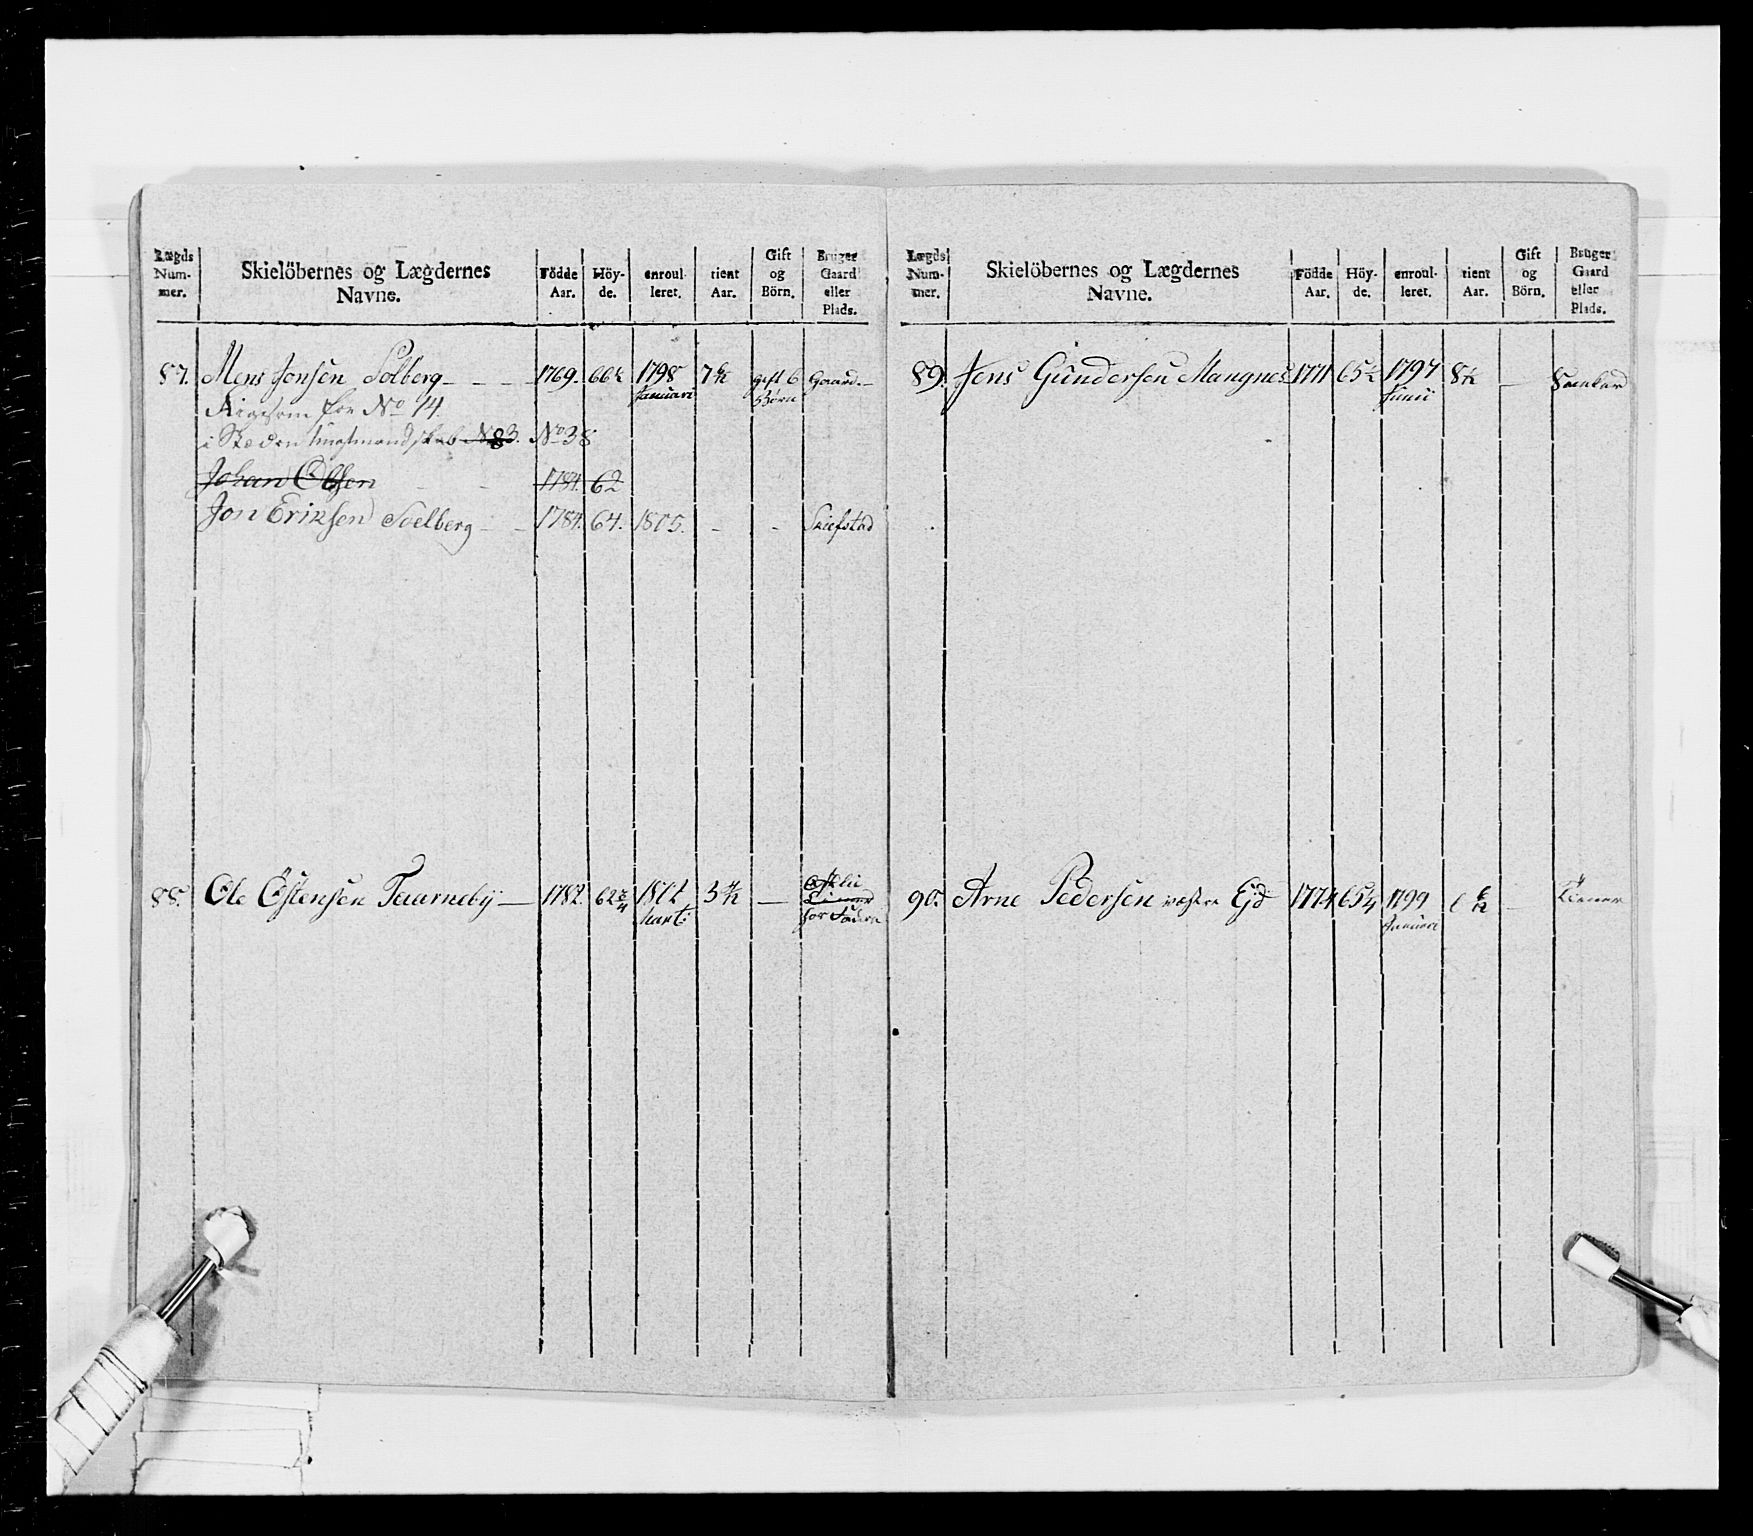 Lægds Num-mer. | Skielöbernes og Lægdernes Navne. | Födde Aar. | Höy-de. | enroul-leret. | tient Aar. | Gift og Börn. | Bruger Gaard eller Plads.
87. Mens Jonsen Solberg - - - 1769. 66½ 1798 Januari 7 gift 6 Børn Gaard. -
for No 14.
i No 83. No 38
Johan Olsen - - 1784. 62
Jon Eriksen Soelberg - - 1784. 64. 1805. - - Skiefstad
88. Ole Östensen Taarnebÿ — 1782. 62¾ 1802 Marti 3 —
for Fadren
Lægds Num-mer. | Skielöbernes og Lægdernes Navne. | Födde Aar. | Höy-de. | enroul-leret. | tient Aar. | Gift og Börn. | Bruger Gaard eller Plads.
89. Jens Gundersen Mangnes 1771 65½ 1797 Junii 8 —
90. Arne Pedersen væstre Ejd 1774 65¼ 1799 Januari 6 — Tiener